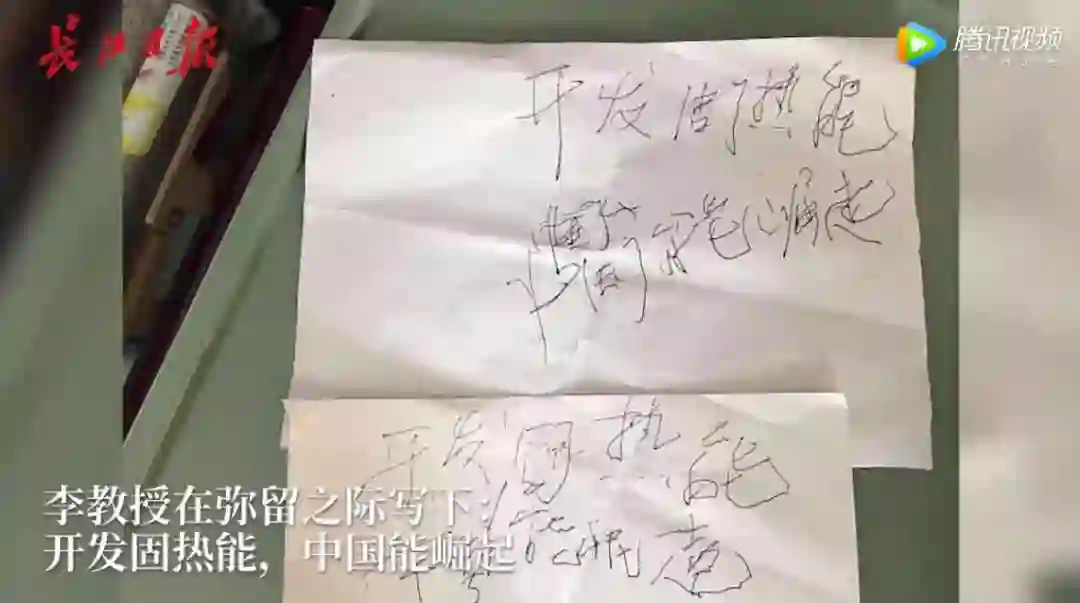 长江日报
腾讯视频
开发固热能
中国能崛起
开发固热能
李教授在弥留之际写下：
开发固热能，中国能崛起